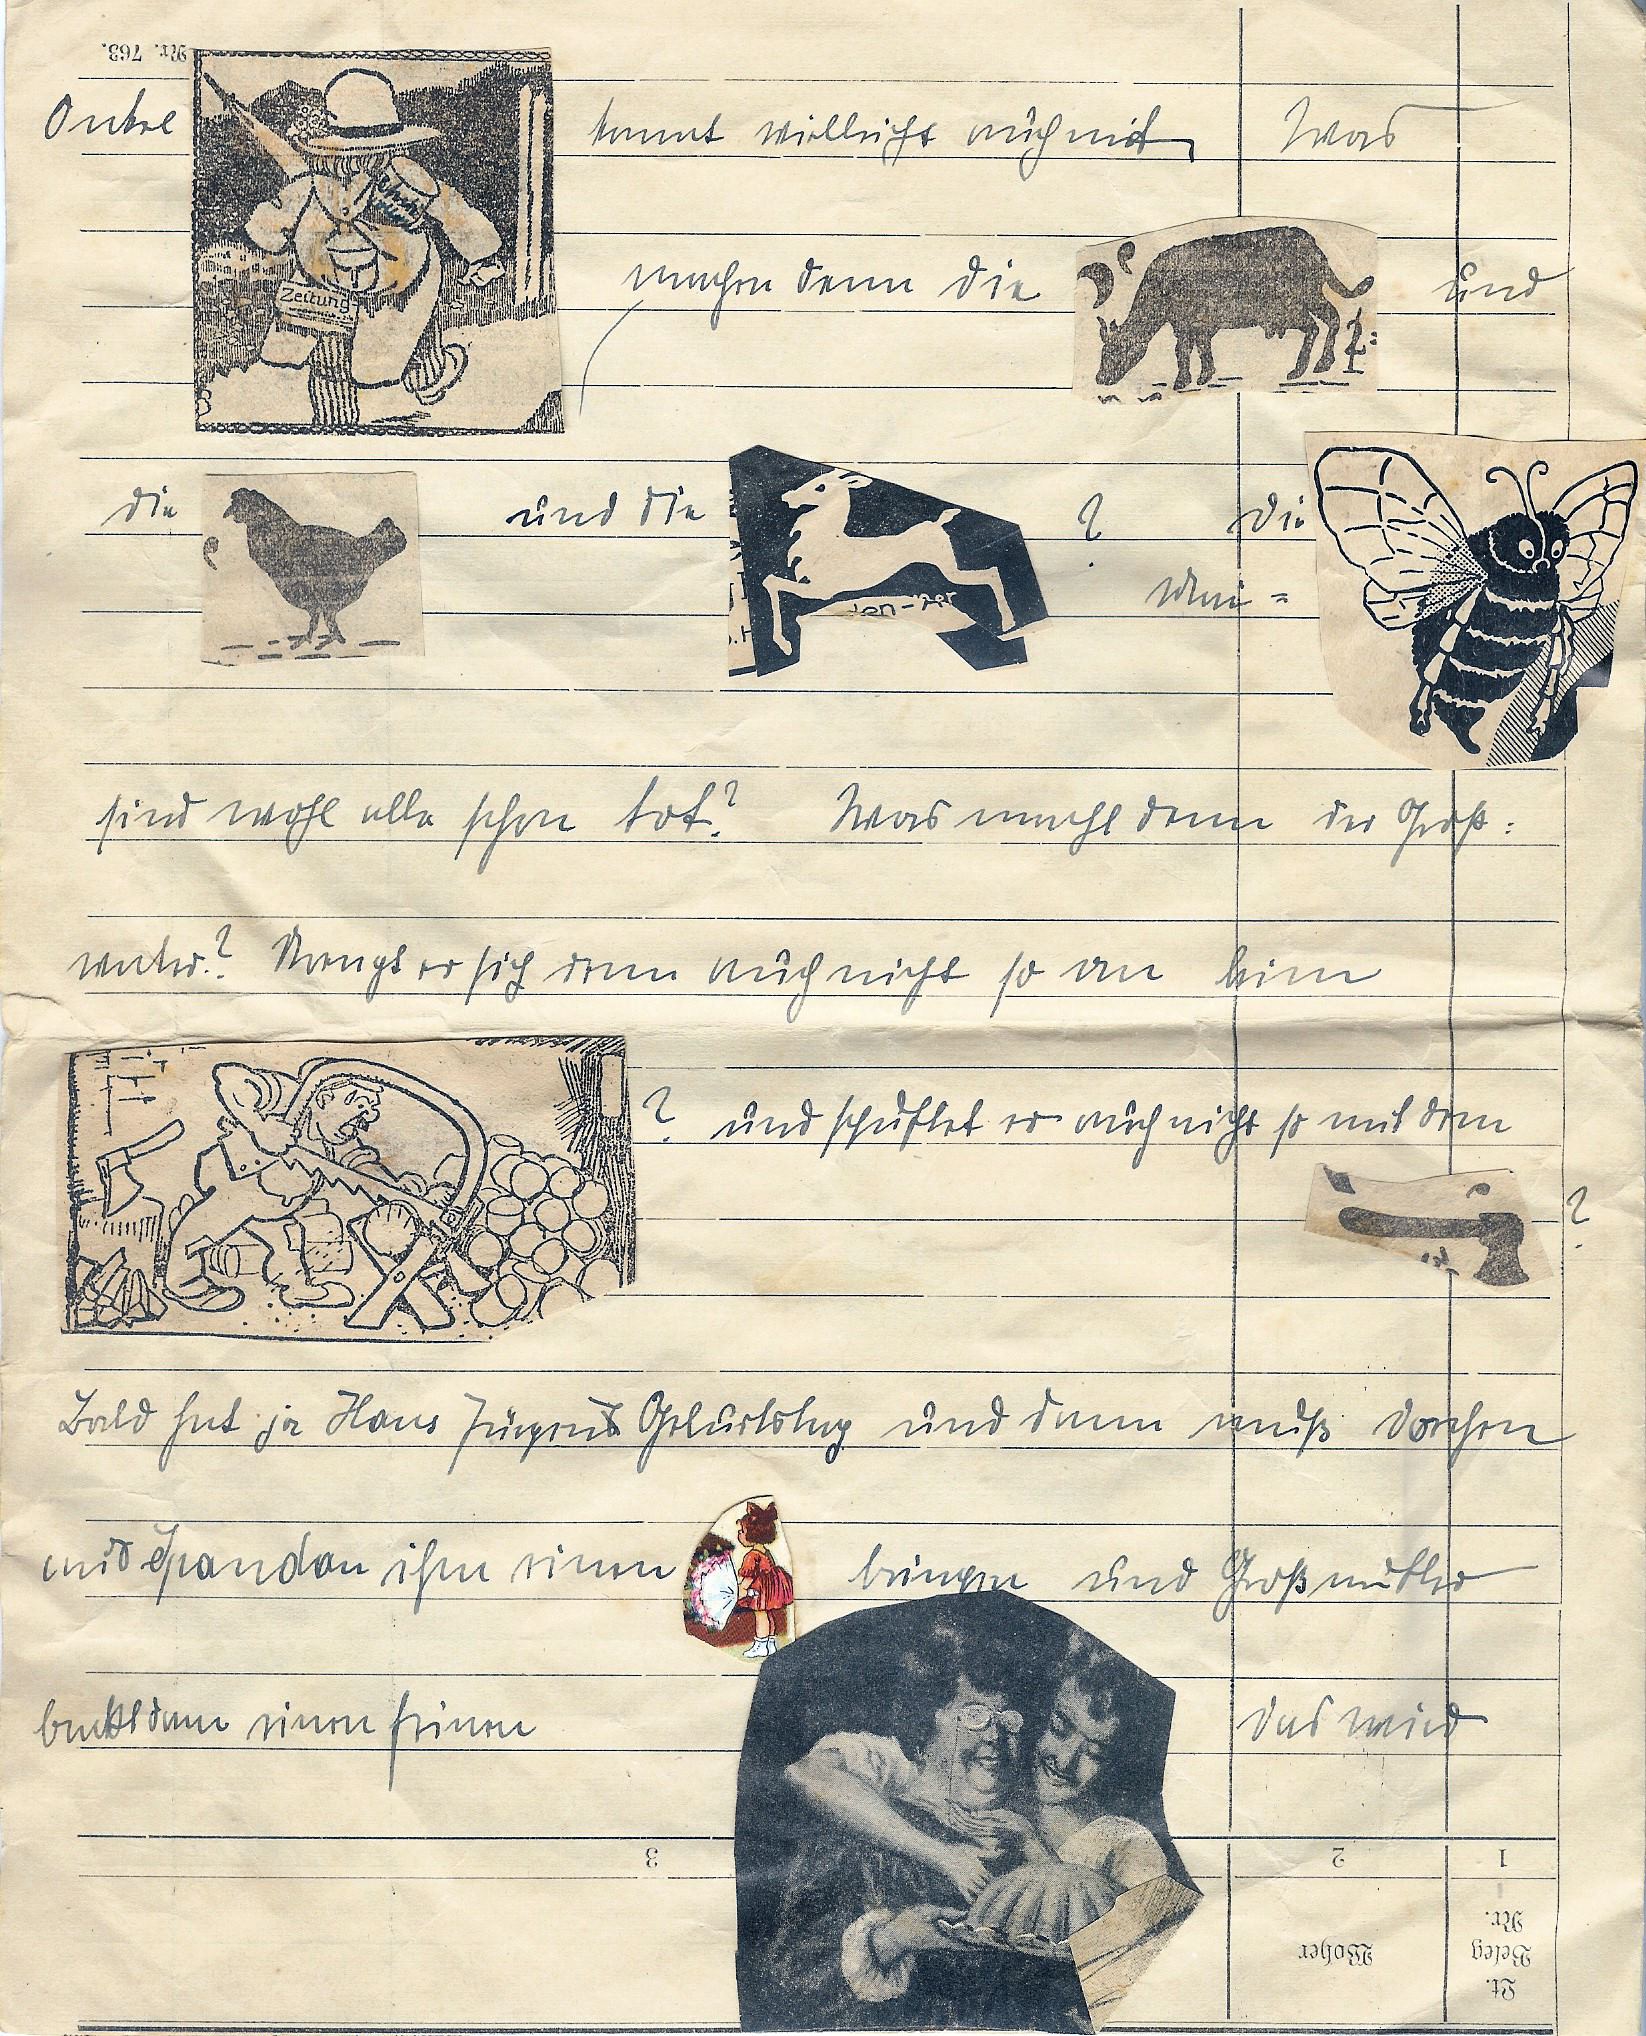 Nr. 763.
Onkel kommt vielleicht auch mit, Was
Zeitung
machen denn die und
die und die ? Die
Wei=
sind wohl alle schon tot? Was macht denn der Groß:
vater? Strengt er sich denn auch nicht so an beim
? und schuftet er auch nicht so mit dem
?
Bald hat ja Hans Jürgens Geburtstag und dann muß Dorchen
aus Spandau ihm einen bringen und Großmutter
backt dann einen feinen das wird
3 2 1
Woher
Lf. Beleg Nr.